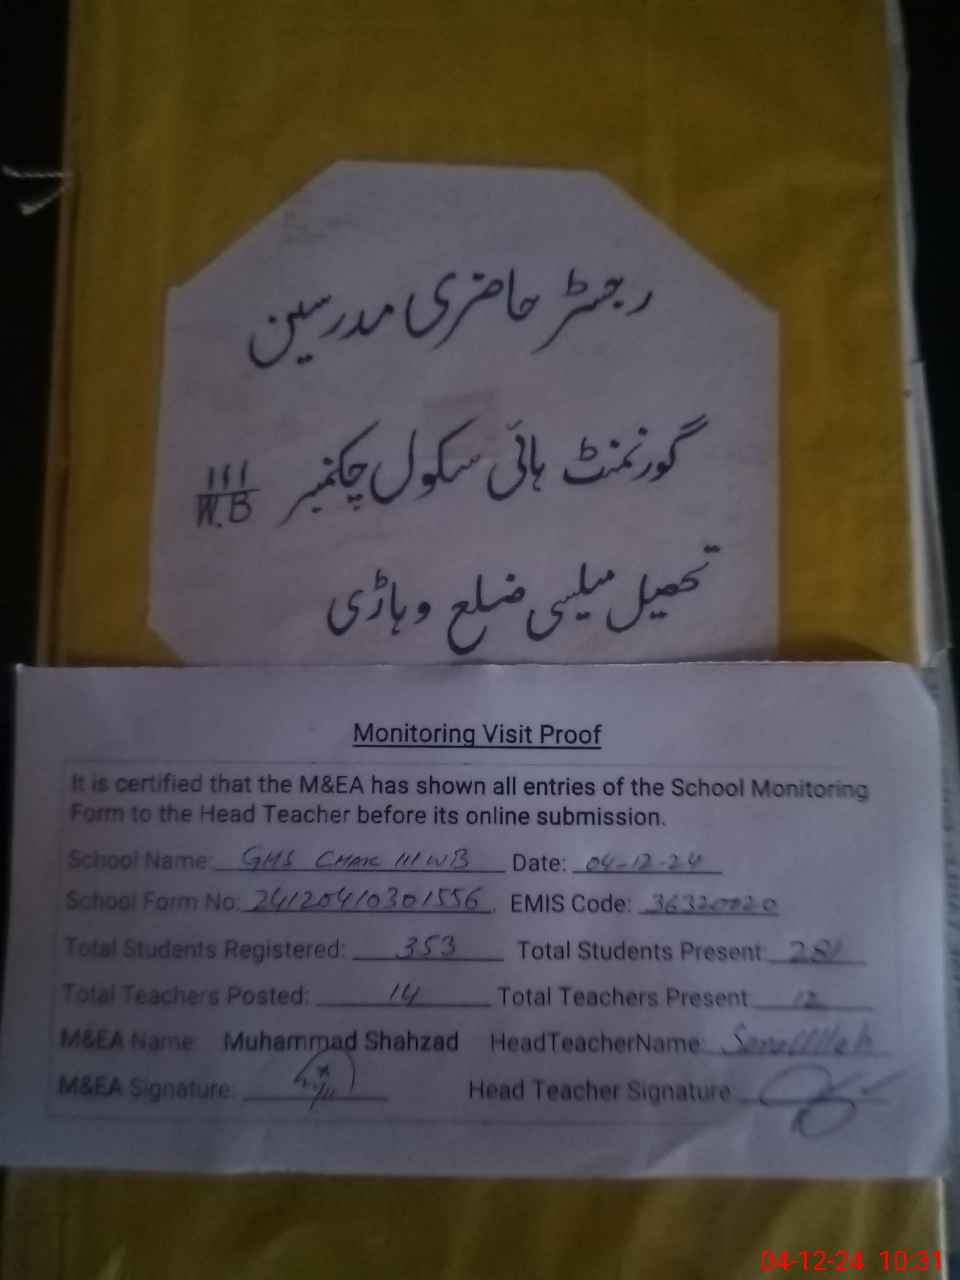 رجسٹر حاضری مدرسین
گورنمنٹ ہائی سکول چکنمبر 111/W.B
تحصیل میلسی ضلع وہاڑی
Monitoring Visit Proof
It is certified that the M&EA has shown all entries of the School Monitoring
Form to the Head Teacher before its online submission.
School Name: GHS CHAK 111 WB Date: 04-12-24
School Form No: 24120410301556 EMIS Code: 36320020
Total Students Registered: 353 Total Students Present: 281
Total Teachers Posted: 14 Total Teachers Present 12
M&EA Name: Muhammad Shahzad HeadTeacherName: SanaUllah
M&EA Signature: Head Teacher Signature:
04-12-24 10:31